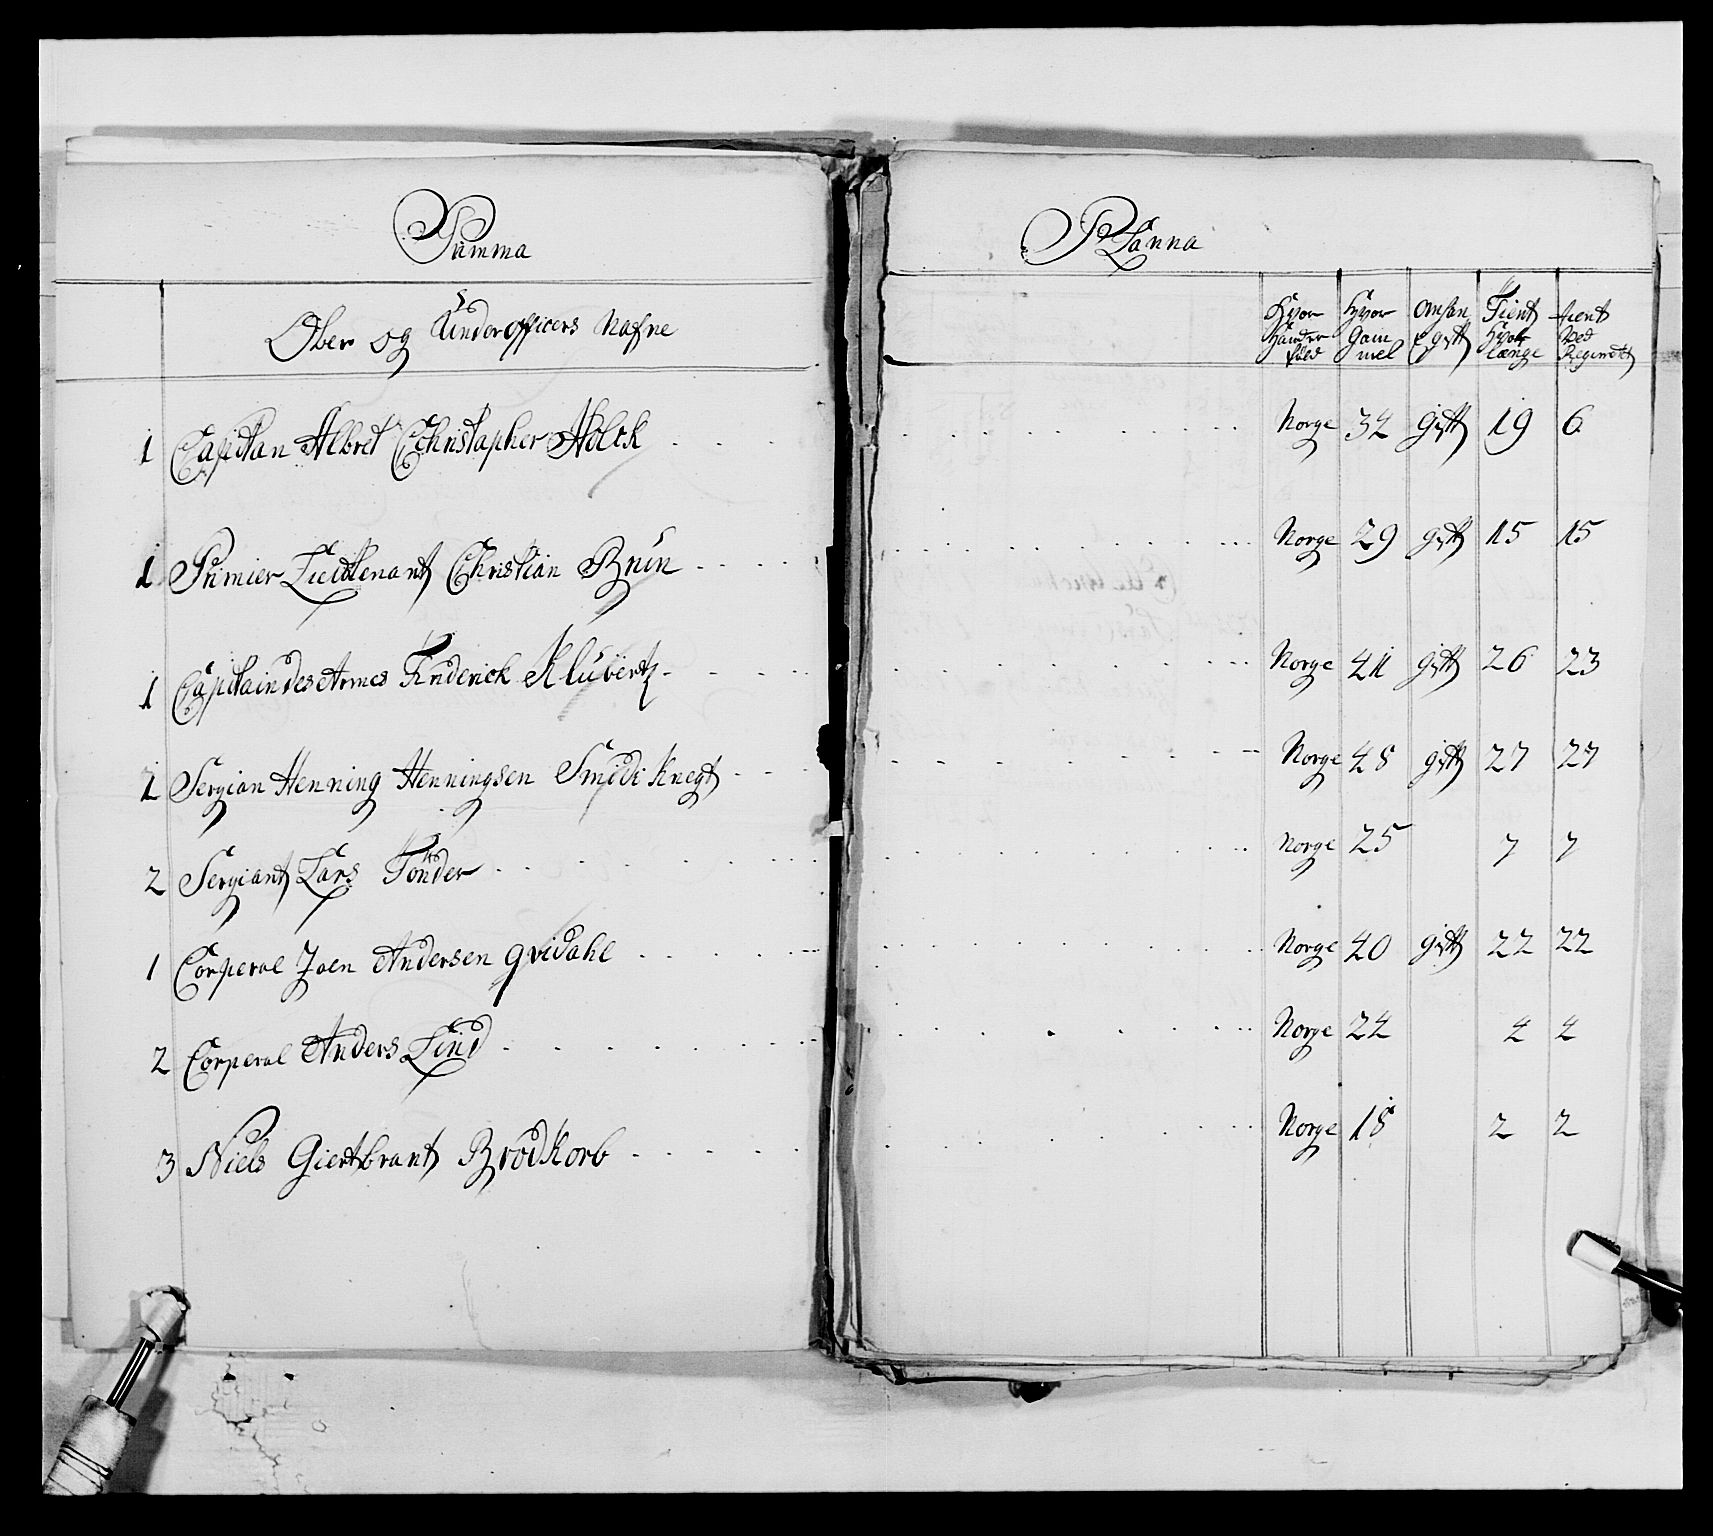 Prima Plana
Ober og Underofficers Nafne
Hvor Hand er fød
Hvor Gammel
om han Er gift
Tient Hvor længe
tient Ved Regimtt
1 Capitan Albret Christapher Holck . . . Norge 34 gift 19 6
1 Primier Lieutenant Christian Brun . . . . Norge 29 gift 15 15
1 Capitaindes Armes Friderick Klübertz . . . . Norge 41 gift 26 23
1 Sergian Henning Henningsen Smidi Knegt . . . Norge 48 gift 27 27
2 Sergiant Lars Tönder . . . . Norge 25 7 7
1 Corperal Joen Andersen Qvidahl . . . . Norge 40 gift 22 22
2 Corperal Anders Lind . . . . Norge 24 4 4
3 Niels Giertbrant Brodkorb . . . . Norge 18 2 2